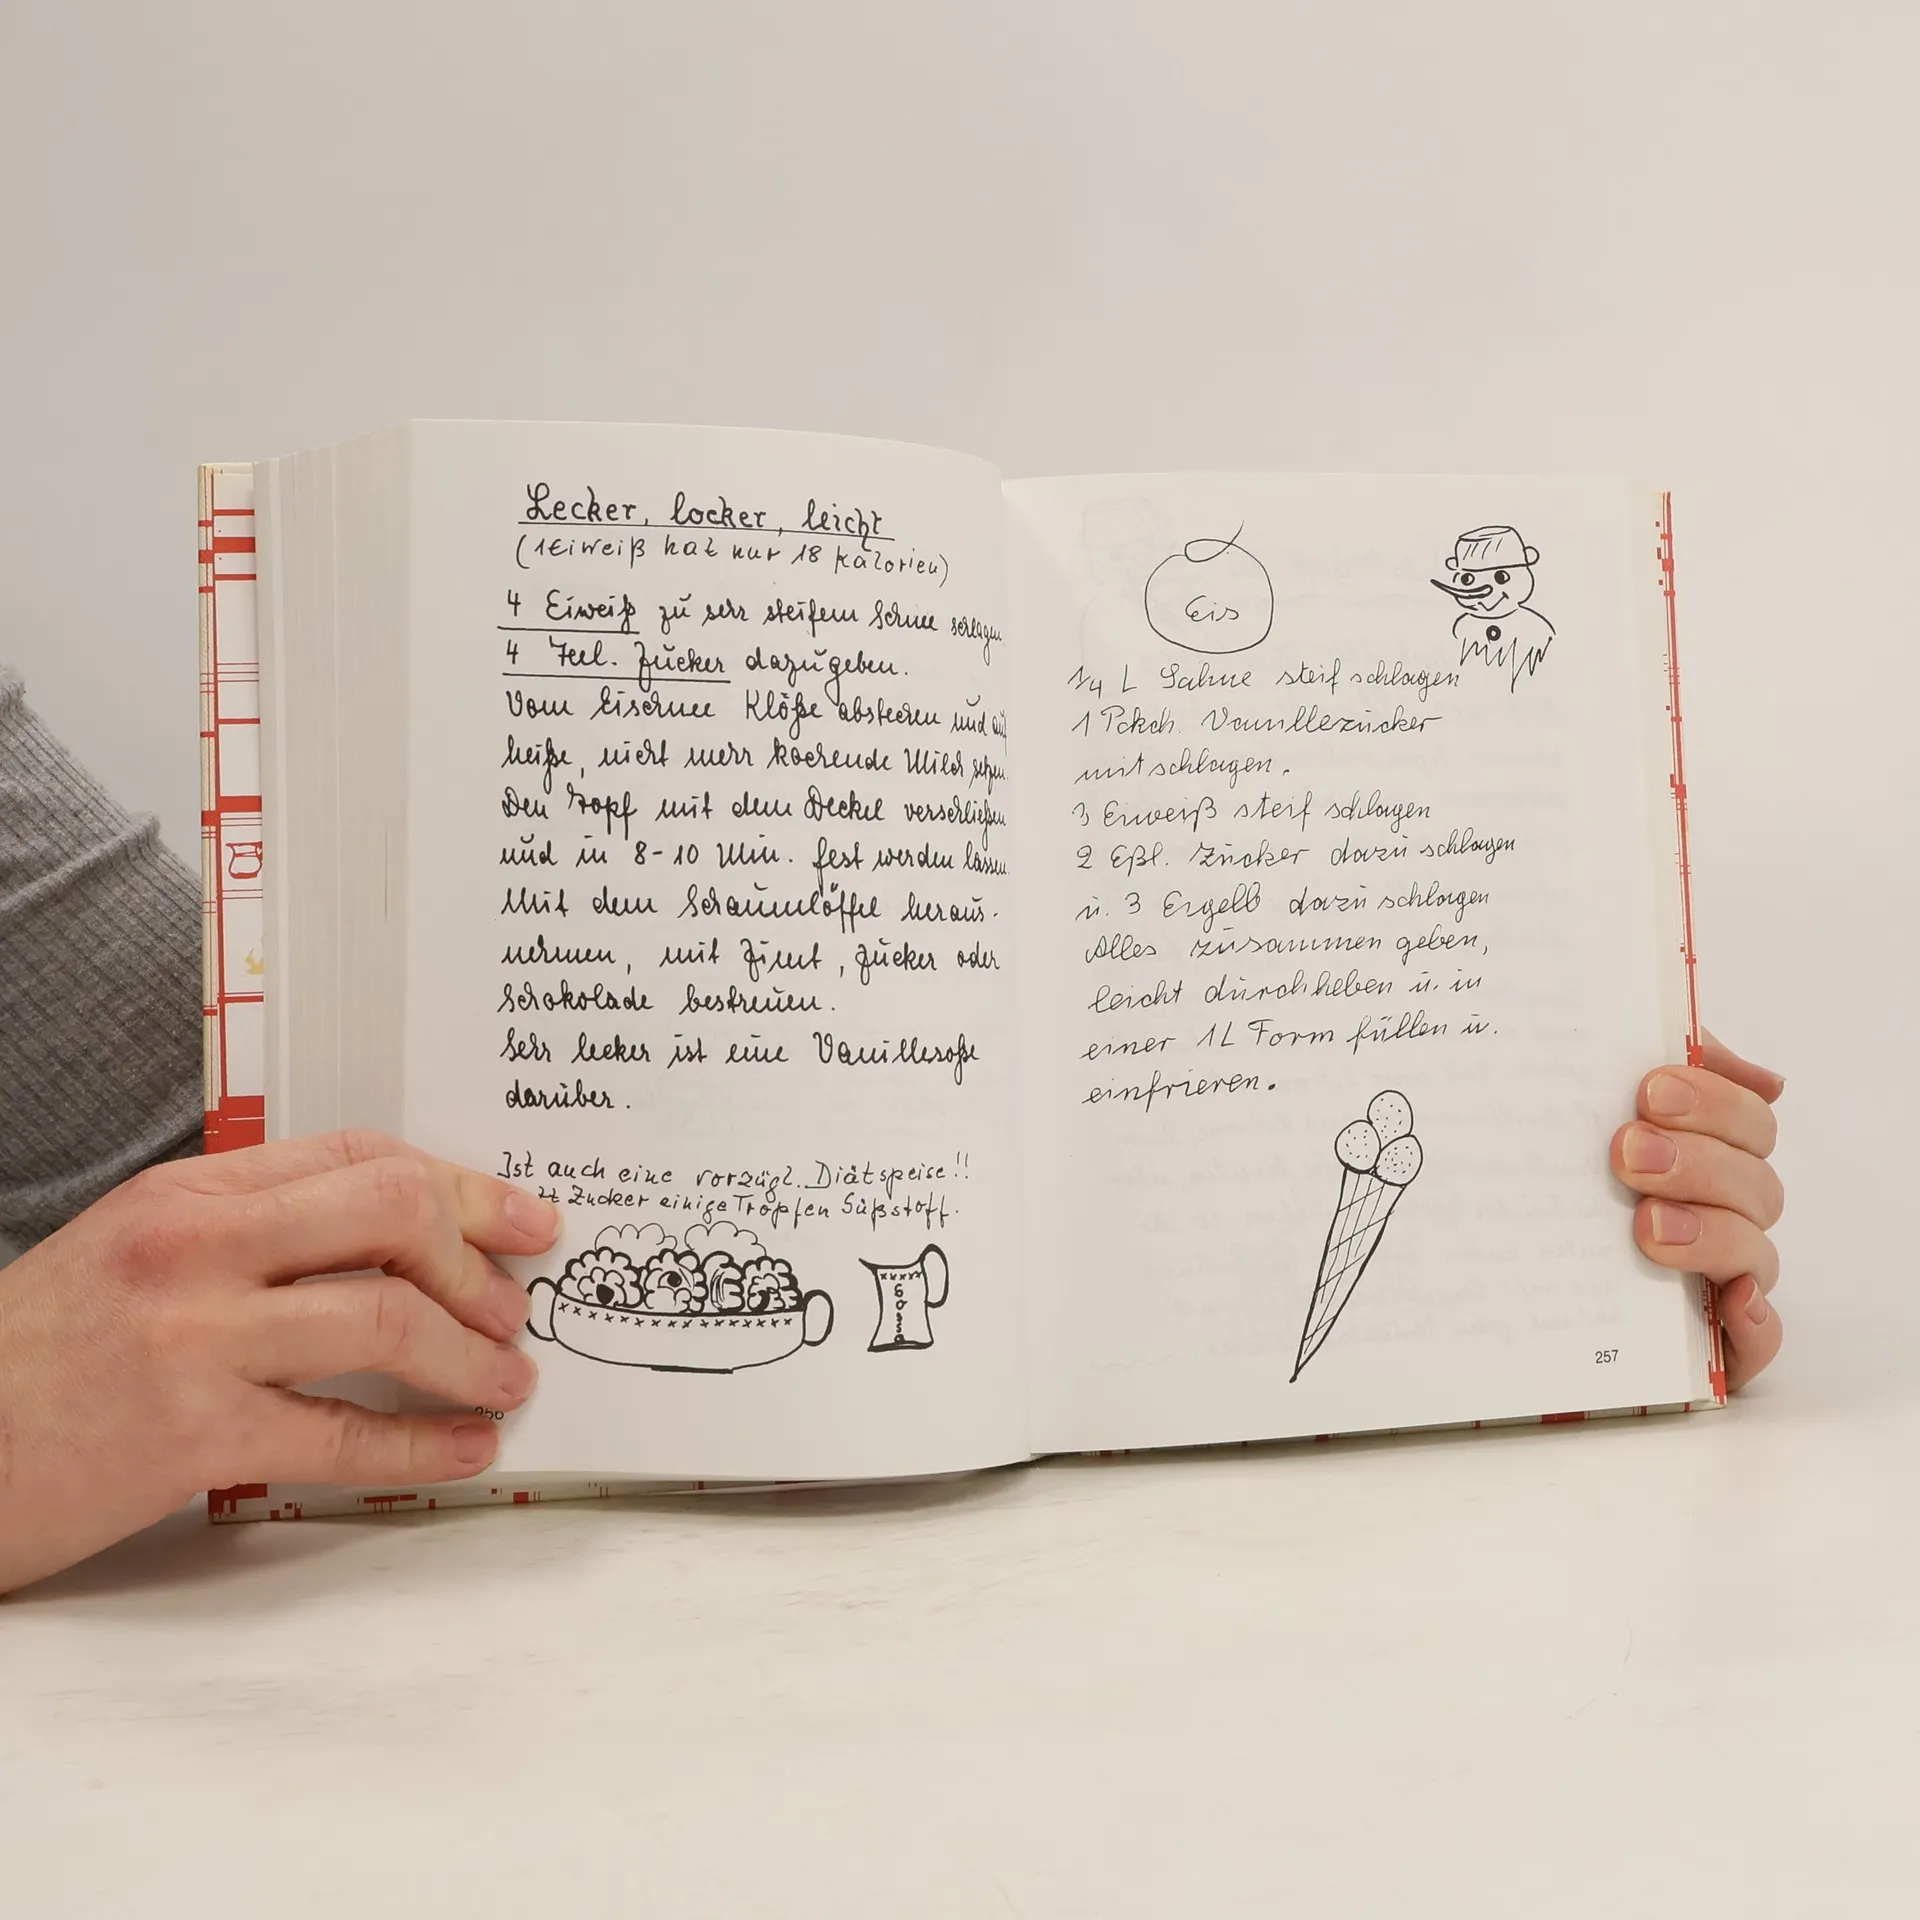 Lecker, locker, leicht
(1 Eiweiß hat nur 18 Kalorien)
4 Eiweiß zu sehr steifem Schnee schlagen
4 Teel. Zucker dazugeben.
Vom Eischnee Klöße abstechen und auf
heiße, nicht mehr kochende Milch setzen.
Den Topf mit dem Deckel verschließen
und in 8-10 Min. fest werden lassen.
Mit dem Schaumlöffel heraus-
nehmen, mit Zimt, Zucker oder
Schokolade bestreuen.
Sehr lecker ist eine Vanillesoße
darüber.
Ist auch eine vorzügl. Diätspeise!!
Zucker einige Tropfen Süßstoff.
256
Eis
1/4 L Sahne steif schlagen
1 Pckch. Vanillezucker
mitschlagen.
3 Eiweiß steif schlagen
2 Eßl. Zucker dazu schlagen
u. 3 Eigelb dazu schlagen
Alles zusammen geben,
leicht durchheben u. in
einer 1L Form füllen u.
einfrieren.
257